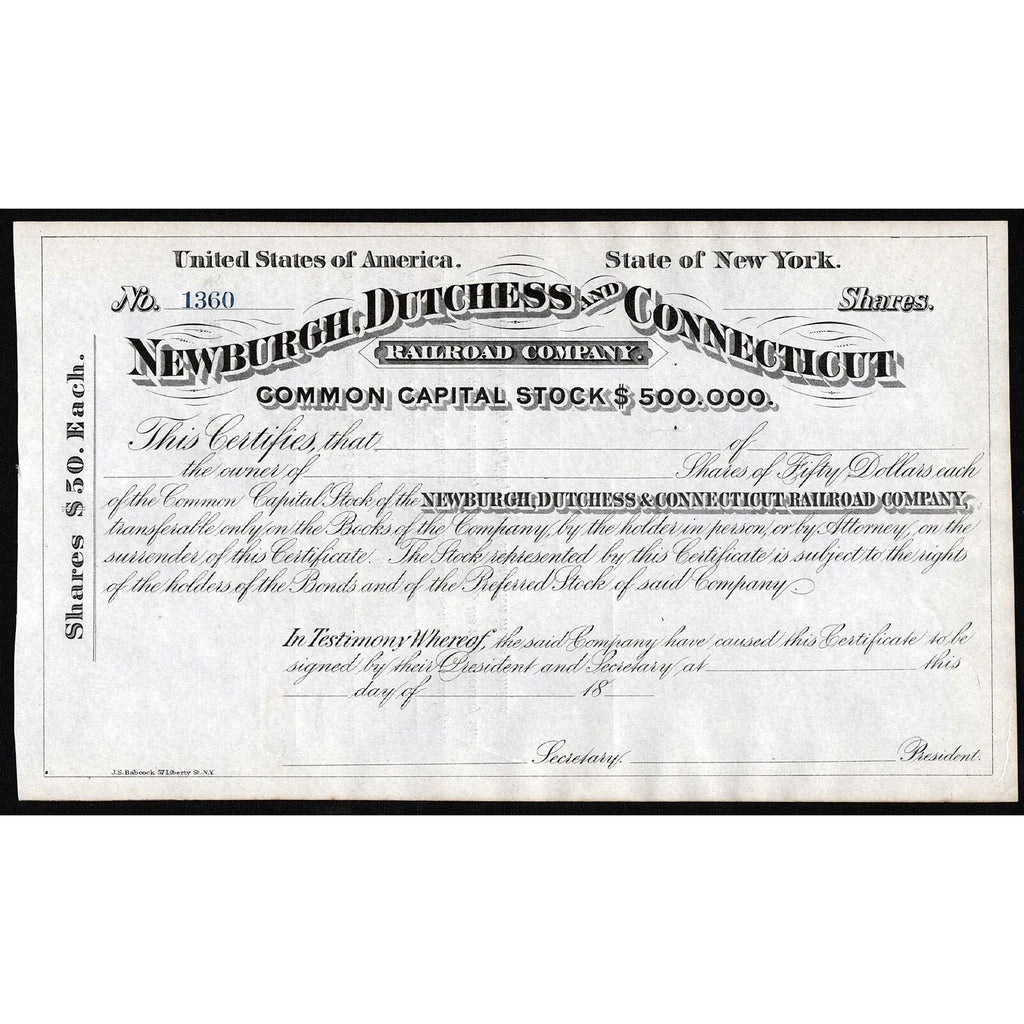 United States of America. State of New York.
No. 1360 Shares.
NEWBURGH, DUTCHESS AND CONNECTICUT
RAILROAD COMPANY.
COMMON CAPITAL STOCK $500.000.
Shares $50. Each.
This Certifies, that of
the owner of Shares of Fifty Dollars each
of the Common Capital Stock of the NEWBURGH, DUTCHESS & CONNECTICUT RAILROAD COMPANY,
transferable only on the Books of the Company, by the holder in person, or by Attorney, on the
surrender of this Certificate. The Stock represented by this Certificate is subject to the rights
of the holders of the Bonds and of the Preferred Stock of said Company.
In Testimony Whereof, the said Company have caused this Certificate to be
signed by their President and Secretary at this
day of 18
Secretary. President.
J.S. Babcock 57 Liberty St. N.Y.